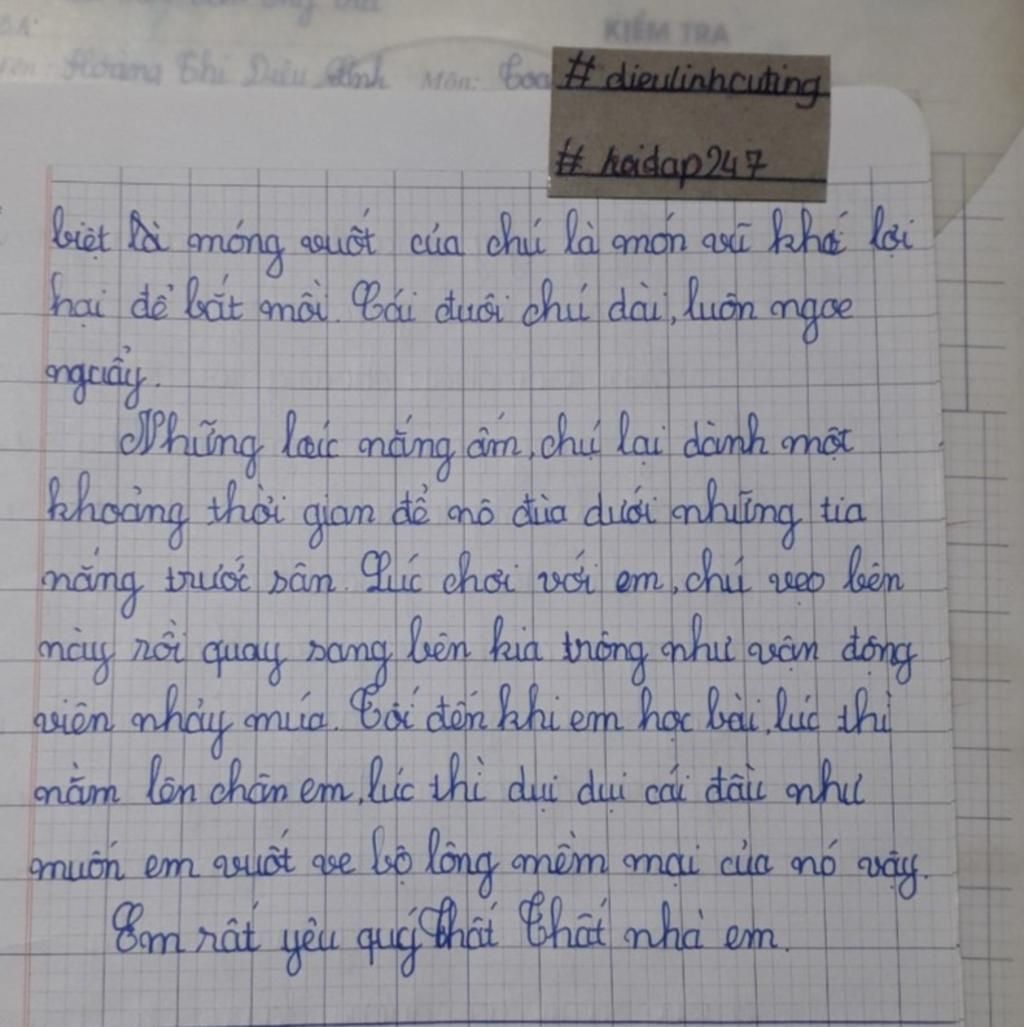 KIỂM TRA
Hoàng Thị Diệu Linh Môn: Toá
# dieulinhcuting
# hoidap247
biệt là móng vuốt của chú là món vũ khí lợi
hại để bắt mồi. Cái đuôi chú dài, luôn ngoe
nguẩy.
Những lúc nắng ấm, chú lại dành một
khoảng thời gian để nô đùa dưới những tia
nắng trước sân. Lúc chơi với em, chú vẹo bên
này rồi quay sang bên kia trông như vận động
viên nhảy múa. Tới đến khi em học bài, lúc thì
nằm lên chân em, lúc thì dụi dụi cái đầu như
muốn em vuốt ve bộ lông mềm mại của nó vậy.
Em rất yêu quý Chất Chất nhà em.